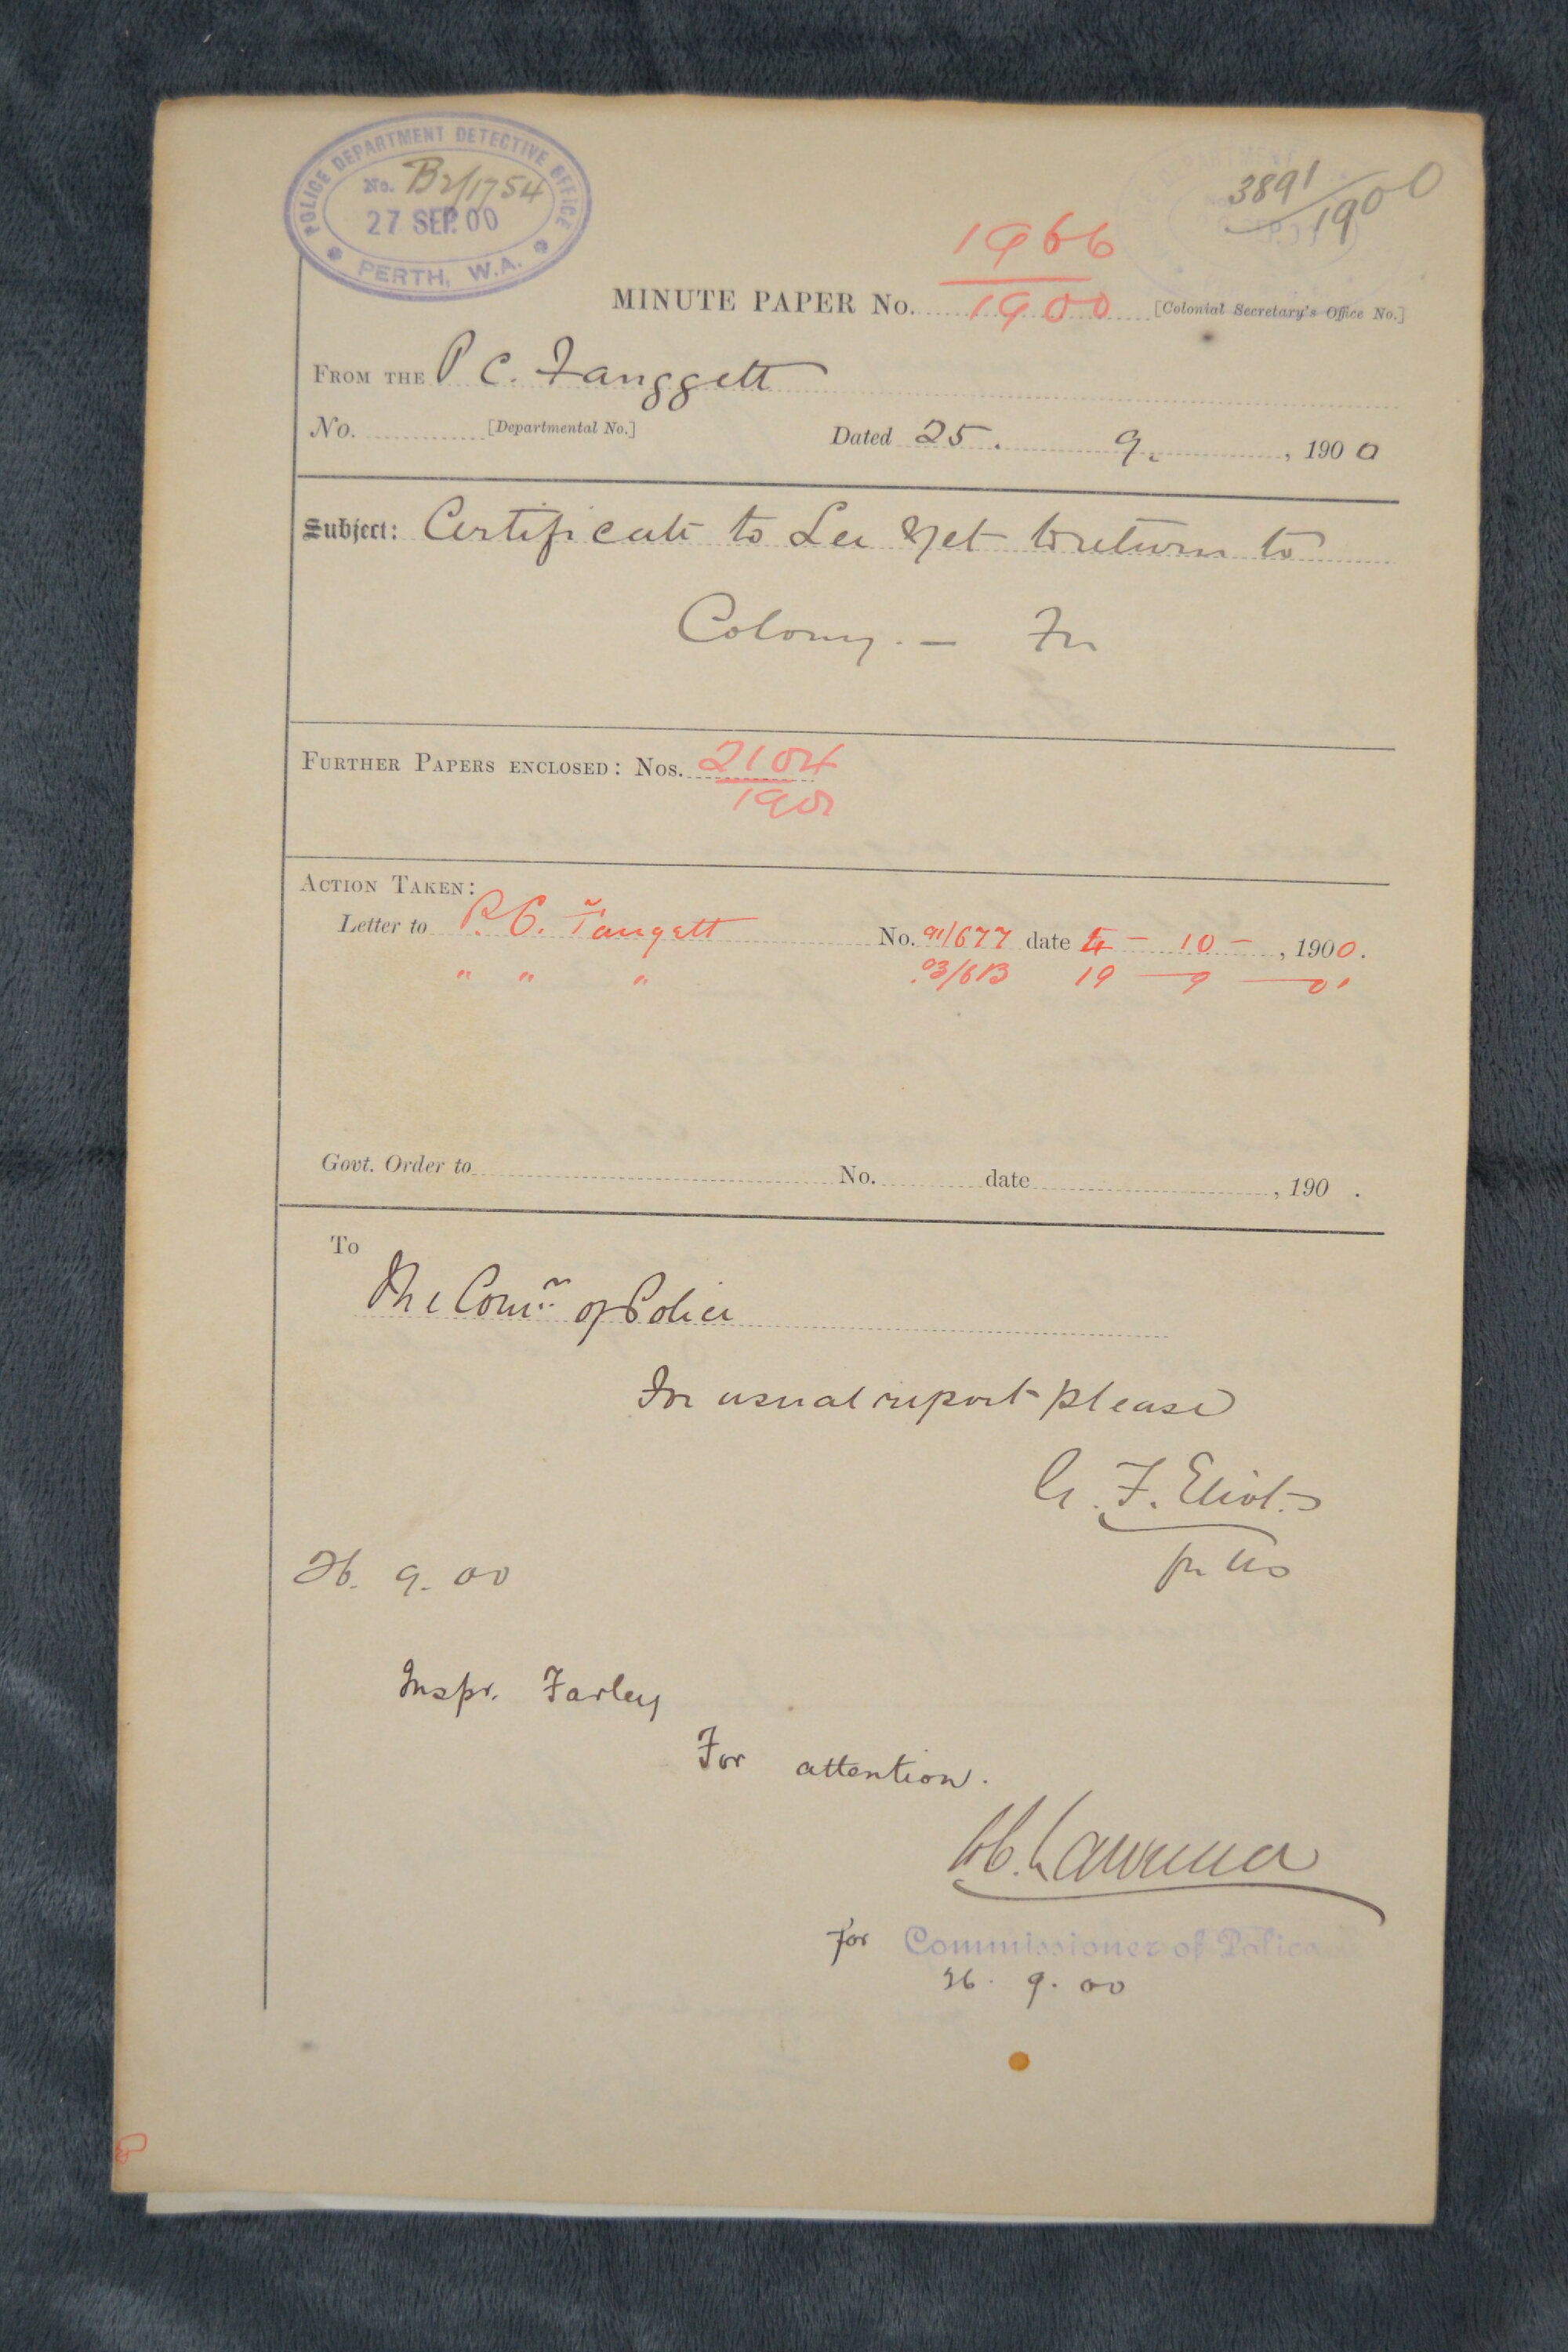 POLICE DEPARTMENT DETECTIVE OFFICE
No. B2/1754
27 SEP. 00
PERTH, W.A.
3891/1900
1966
MINUTE PAPER No. 1900 [Colonial Secretary's Office No.]
FROM THE P C. Fanggett
No. [Departmental No.] Dated 25. 9. , 1900
Subject: Certificate to Lee Yet to return to
Colony. — For
FURTHER PAPERS ENCLOSED: Nos. 2104
1901
ACTION TAKEN:
Letter to P. C. Fangett No. 91/677 date 4 - 10 - , 1900.
" " " 03/613 19 — 9 — 01
Govt. Order to No. date , 190 .
To
The Comr. of Police
For usual report please
G. F. Eliot
26. 9. 00
Inspr. Farley
For attention.
Lawrence
for Commissioner of Police
26. 9. 00